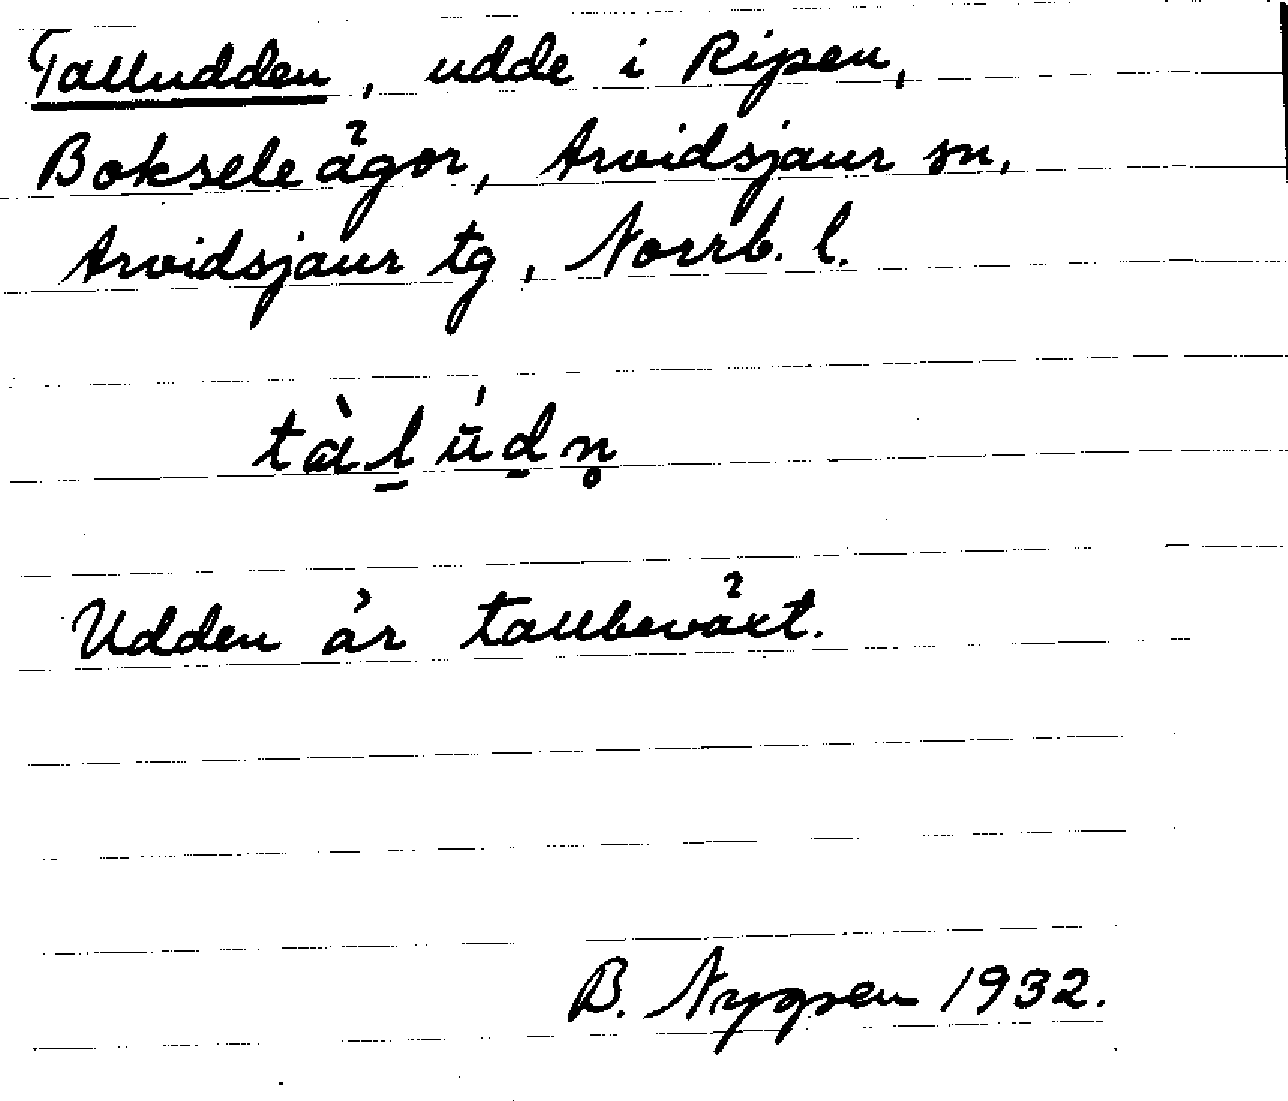 Talludden, udde i Ripen,
Boksele ägor, Arvidsjaur sn,
Arvidsjaur tg, Norrb. l.
tàl̠ úd̠n̥
Udden är tallbeväxt.
B. Nygren 1932.